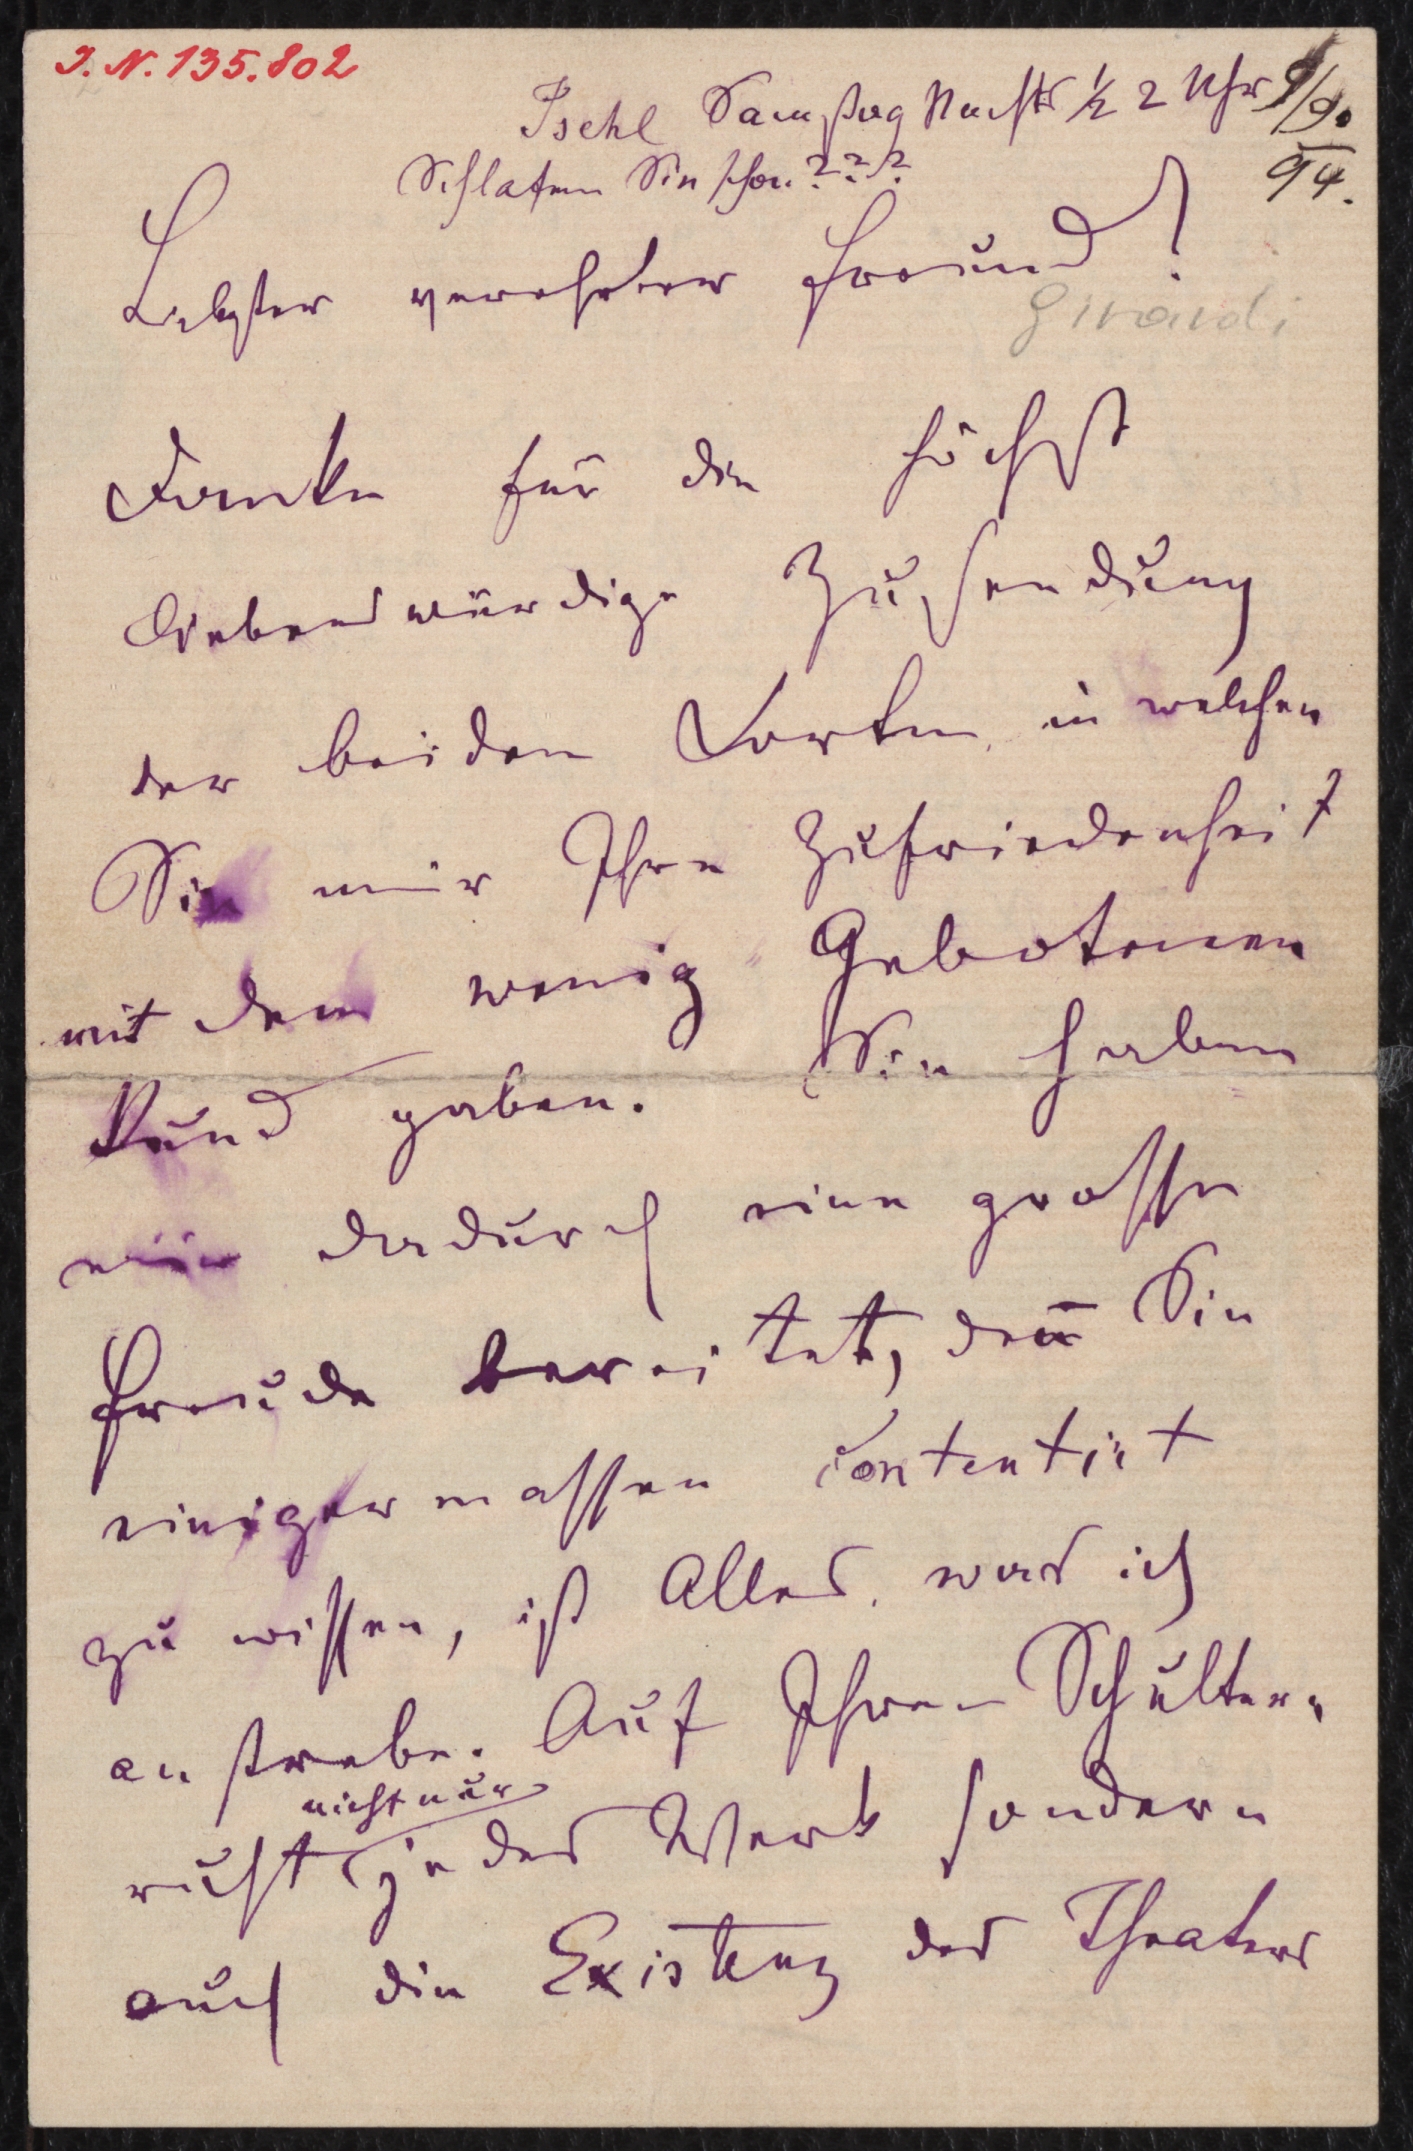 I. N. 135.802
Ischl Samstag Nachts ½ 2 Uhr 9/90
94.
Schlafen Sie schon ???
Liebster verehrter Freund!
Girardi
Danke für die höchst
liebenswürdige Zusendung
der beiden Karten, in welchen
Sie mir Ihre Zufriedenheit
mit dem wenig Gebotenen
Kund gaben. Sie haben
mir dadurch eine grosse
Freude bereitet, den̄ Sie
einigermassen contentirt
zu wissen, ist Alles, was ich
anstrebe. Auf Ihren Schultern
nicht nur
ruht jedes Werk sondern
auch die Existenz des Theaters